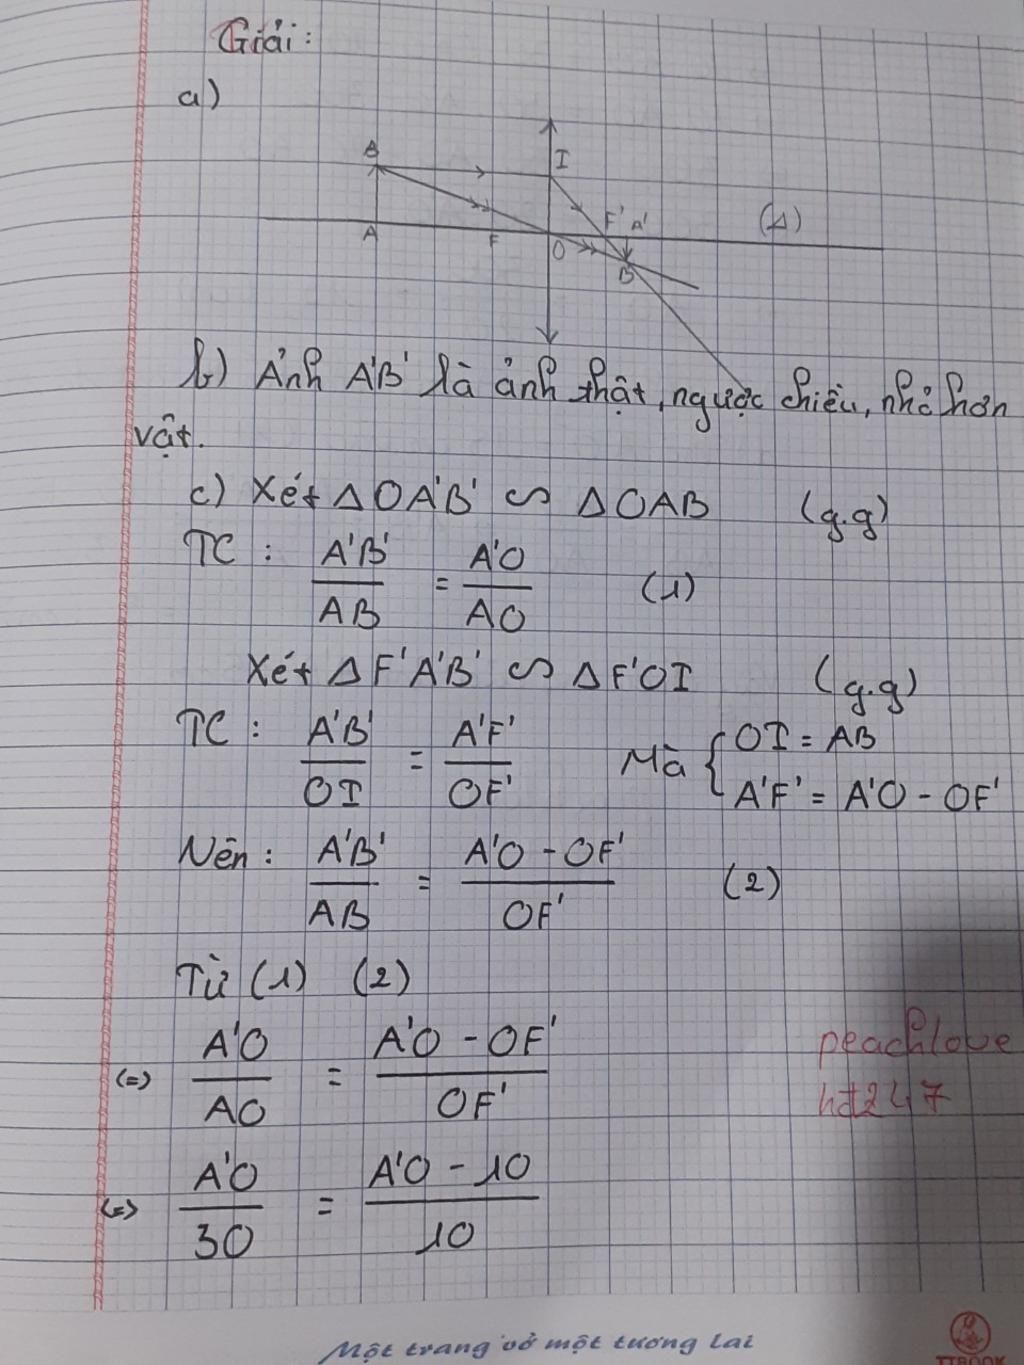 Giải:
a)
B
I
F' A' (Δ)
A F O
B
b) Ảnh A'B' là ảnh thật, ngược chiều, nhỏ hơn
vật.
c) Xét ΔOA'B' ∽ ΔOAB (g.g)
TC : A'B'/AB = A'O/AO (1)
Xét ΔF'A'B' ∽ ΔF'OI (g.g)
TC : A'B'/OI = A'F'/OF' Mà { OI = AB
A'F' = A'O - OF'
Nên : A'B'/AB = A'O - OF'/OF' (2)
Từ (1) (2)
(=) A'O/AO = A'O - OF'/OF'
peachlove
hđ247
(=) A'O/30 = A'O - 10/10
Một trang vở một tương lai
TTBOOK